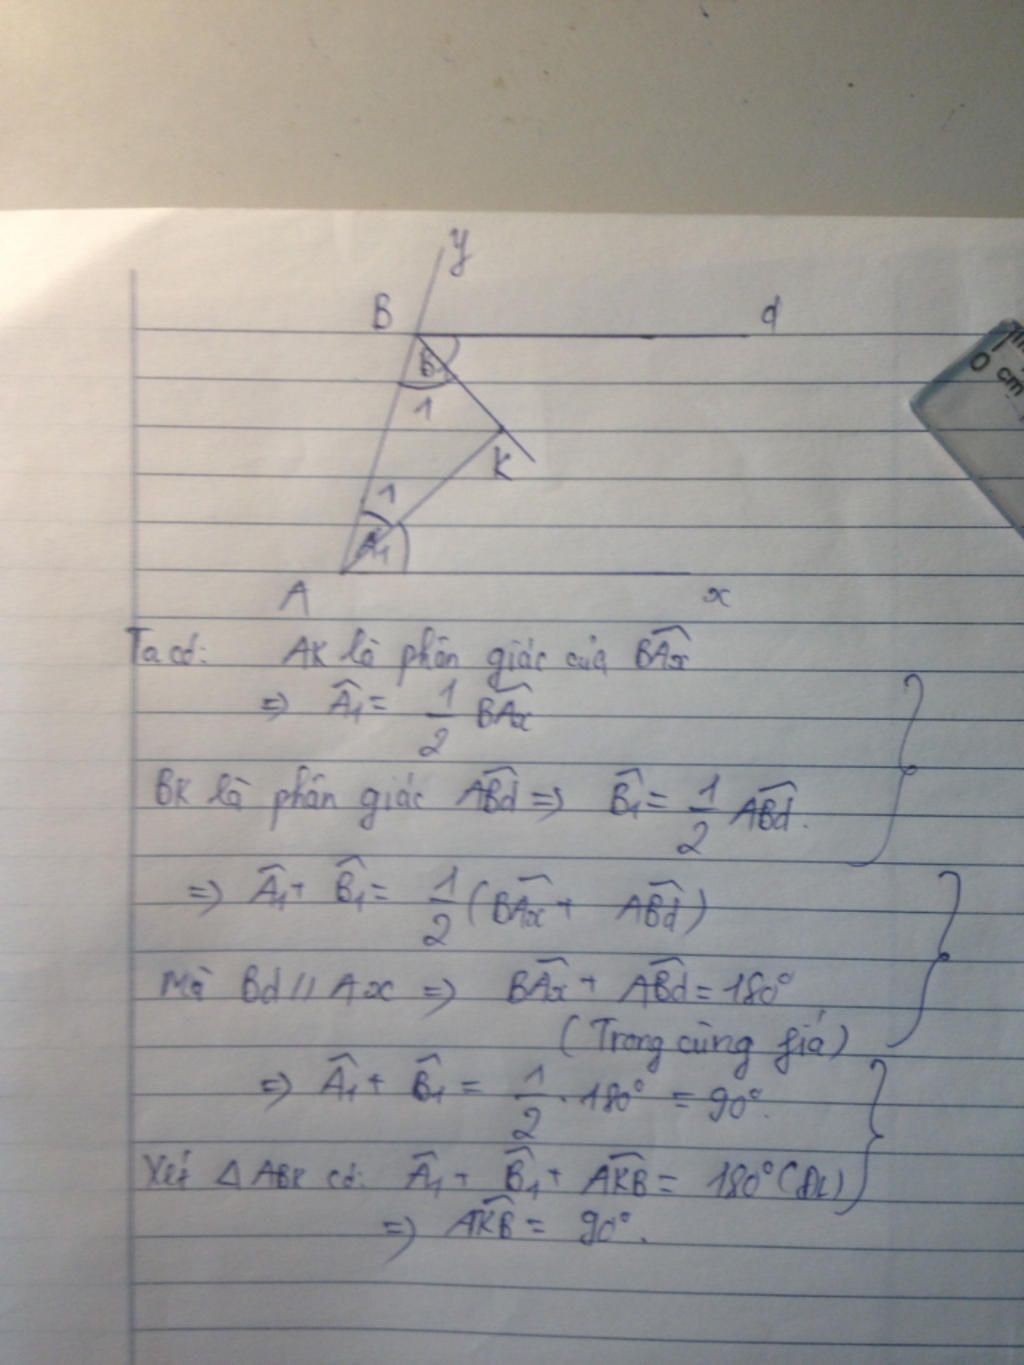 y
B
d
B
1
K
1
A1
A
x
0 cm
Ta có: AK là phân giác của BÂx
=> Â1 = 1/2 BÂx
BK là phân giác AB̂d => B̂1 = 1/2 AB̂d.
=> Â1 + B̂1 = 1/2 (BÂx + AB̂d)
Mà Bd // Ax => BÂx + AB̂d = 180°
(Trong cùng fiá)
=> Â1 + B̂1 = 1/2 . 180° = 90°.
Xét Δ ABK có: Â1 + B̂1 + AK̂B = 180° (ĐL)
=> AK̂B = 90°.